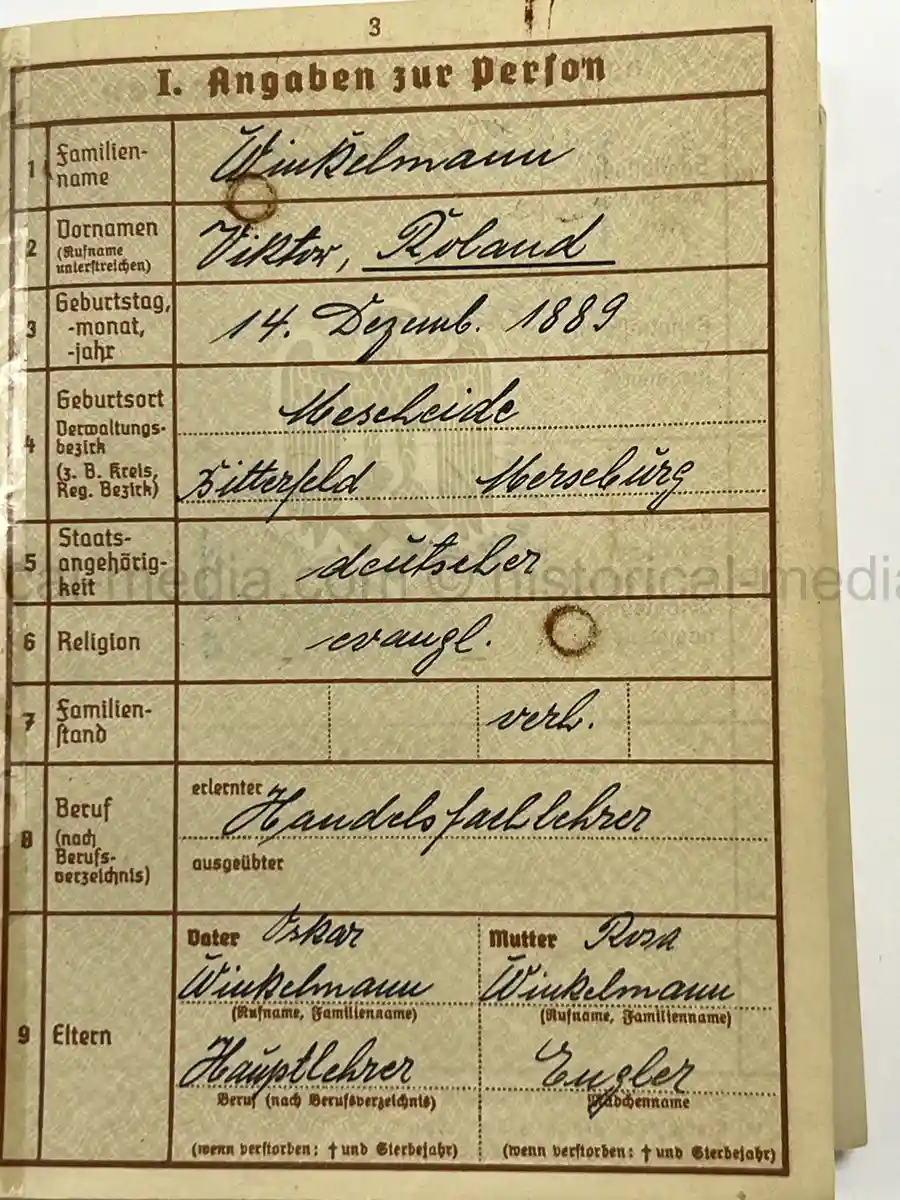 3
I. Angaben zur Person
1 Familien-
name
Winkelmann
2 Vornamen
(Rufname
unterstreichen)
Viktor, Roland
3 Geburtstag,
-monat,
-jahr
14. Dezemb. 1889
4 Geburtsort
Mescheide
Verwaltungs-
bezirk
(z. B. Kreis,
Reg. Bezirk)
Bitterfeld Merseburg
5 Staats-
angehörig-
keit
deutscher
6 Religion
evangl.
7 Familien-
stand
verh.
8 Beruf
(nach
Berufs-
verzeichnis)
erlernter
Handelsfachlehrer
ausgeübter
9 Eltern
Vater Oskar
Winkelmann
(Rufname, Familienname)
Hauptlehrer
Beruf (nach Berufsverzeichnis)
(wenn verstorben: † und Sterbejahr)
Mutter Rosa
Winkelmann
(Rufname, Familienname)
Engler
Mädchenname
(wenn verstorben: † und Sterbejahr)
cal-media.com © historical-media